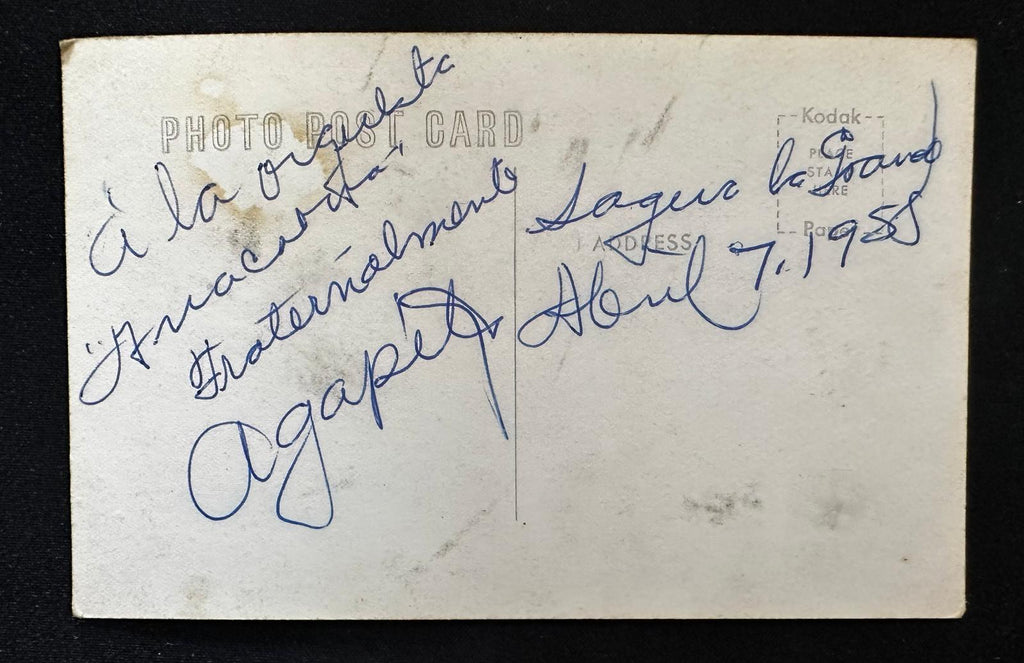 PHOTO POST CARD
A la orquesta
"Anacaona"
Fraternalmente
Agapito
Kodak
PLACE
STAMP
HERE
Paper
ADDRESS
Sagua la Grande
Abril 7, 1955